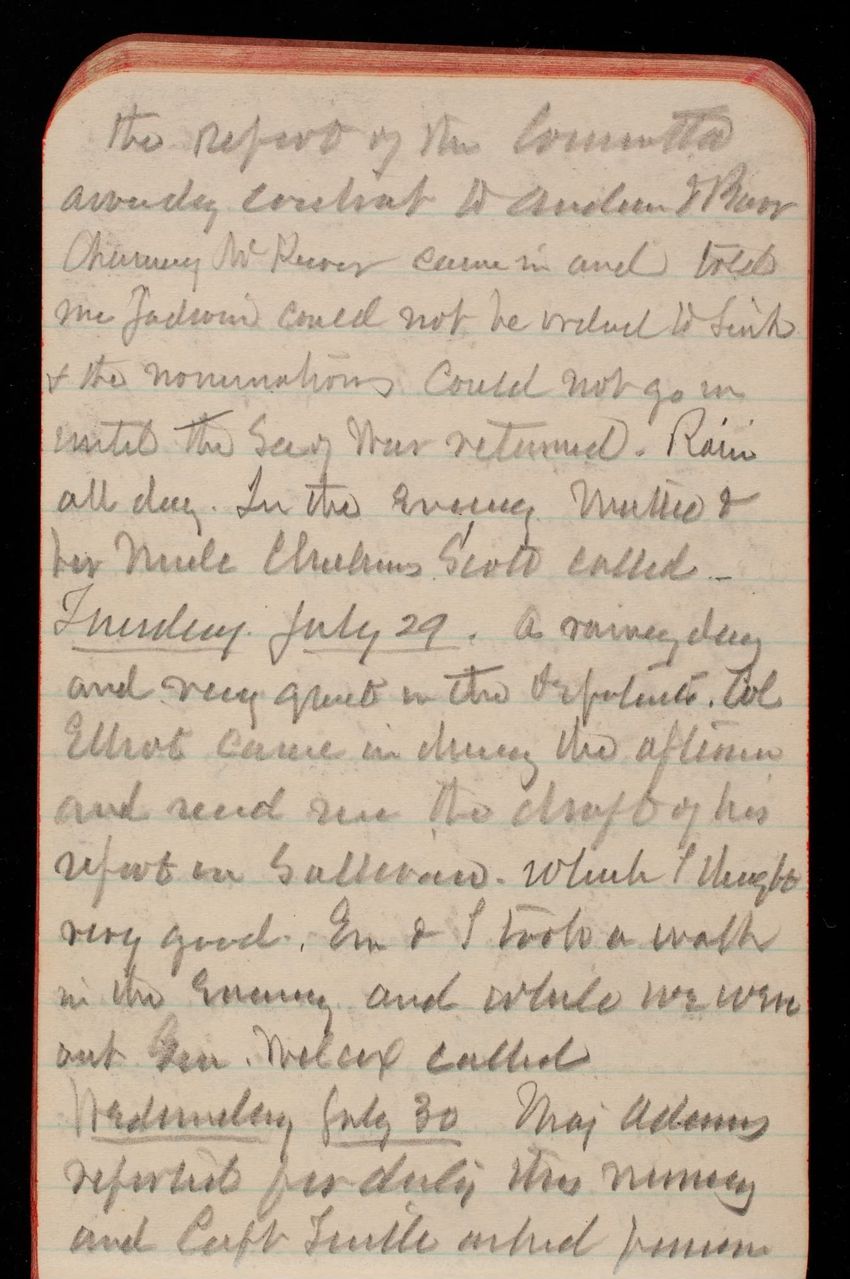 the report of the Committee
awarding contract to Anderson & Barr
Chauncey McKeever came in and told
me Jadwin could not be ordered to
& the nominations could not go in
until the Secy War returned. Rain
all day. In the Evening Mattie &
her Uncle Scott called -
Tuesday July 29. A rainy day
and very quiet in the Department. Col
Elliot came in during the afternoon
and read me the draft of his
report on Sullivan. which I thought
very good. Em & I took a walk
in the Evening and while we were
out Gen. Wilcox called
Wednesday July 30 Maj Adams
reported for duty this morning
and Capt Turtle asked